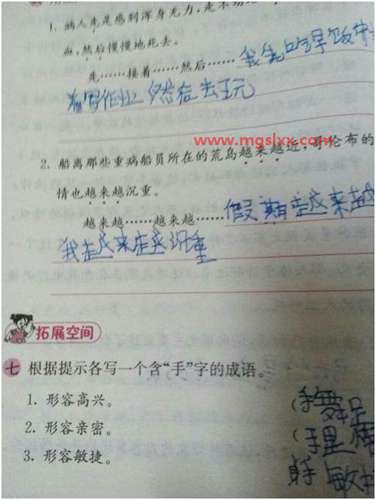 1. 病人先是感到浑身无力,走不动
血,然后慢慢地死去。
先……接着……然后……我先吃早饭
着写作业 然后去玩
www.mgslxx.com
2. 船离那些重病船员所在的荒岛越来越近,哥伦布的
情也越来越沉重。
越来越……越来越……假期越来越
我越来越沉重
拓展空间
七 根据提示各写一个含“手”字的成语。
1. 形容高兴。
(手舞足
2. 形容亲密。
(手
3. 形容敏捷。
手敏